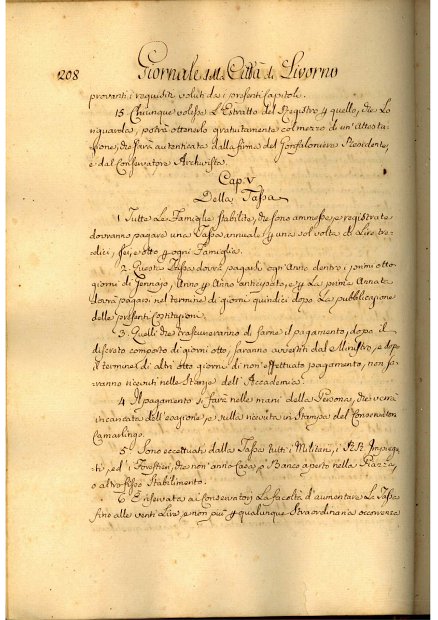 208 Giornale della Città di Livorno
provanti i requisiti voluti da i presenti Capitoli.
15. Chiunque volesse l'Estratto del Registro p quello, che Lo
riguarda, potrà ottenerlo gratuitamente col mezzo di un'Attesta-
zione, che sarà autenticata dalla firma del Gonfaloniere Presidente,
e dal Conservatore Archivista.
Cap. V
Della Tassa
1. Tutte Le Famiglie stabilite, che sono ammesse, e registrate
dovranno pagare una Tassa annuale p una sol volta di Lire tre-
dici, sei, e otto p ogni Famiglia.
2. Questa Tassa dovrà pagarsi ogn'Anno dentro i primi otto
giorni di Gennajo, Anno p Anno anticipato, e p La prima Annata
dovrà pagarsi nel termine di giorni quindici dopo La pubblicazione
delle presenti Costituzioni.
3. Quelli che trascureranno di farne il pagamento, dopo il
discreto comporto di giorni otto, saranno avvertiti dal Ministro, e dopo
il termine di altri otto giorni di non'effettuato pagamento, non sa-
ranno ricevuti nelle Stanze dell'Accademia.
4. Il pagamento si farà nelle mani della Persona, che verrà
incaricata dell'esazione, e sulla ricevuta in Stampa del Conservatore
Camarlingo.
5. Sono eccettuati dalla Tassa tutti i Militari, i RR. Impiega-
ti, ed i Forestieri, che non'anno Casa, o Banco aperto nella Piazza,
o altro fisso Stabilimento.
6. È riservata ai Conservatori La facoltà d'aumentare La Tassa
fino alle venti Lire, e non più p qualunque Straordinaria occorrenza